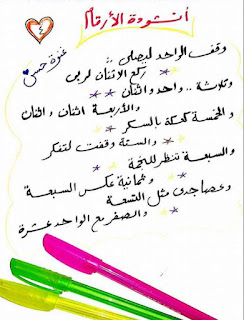 أنشودة الأرقام
٤
غزوة حسن
وقف الواحد ليصلي
ركع الاثنان لربي
وثلاثة .. واحد واثنان
والأربعة اثنان و اثنان
والخمسة كعكة بالسكر
والستة وقفت لتفكر
والسبعة تنظر للنجمة
وثمانية عكس السبعة
وعصا جدي مثل التسعة
والصفر مع الواحد عشرة